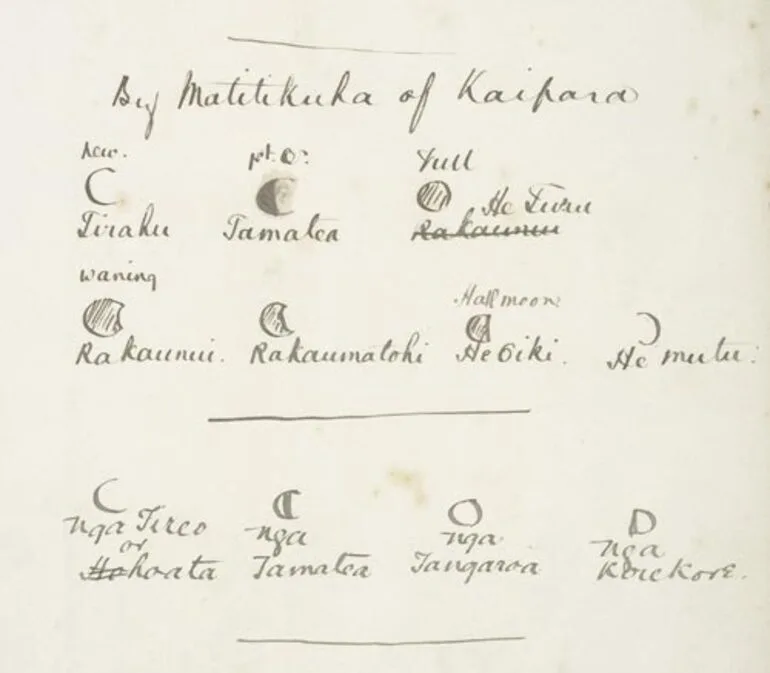 By Matitikuha of Kaipara
new. Full
He Turu
Tirahu Tamatea Rakaunui
waning
Half moon.
Rakaunui. Rakaumatohi He Oiki. He mutu.
nga Tireo nga nga nga
or
Hohoata Tamatea Tangaroa KoreKore.